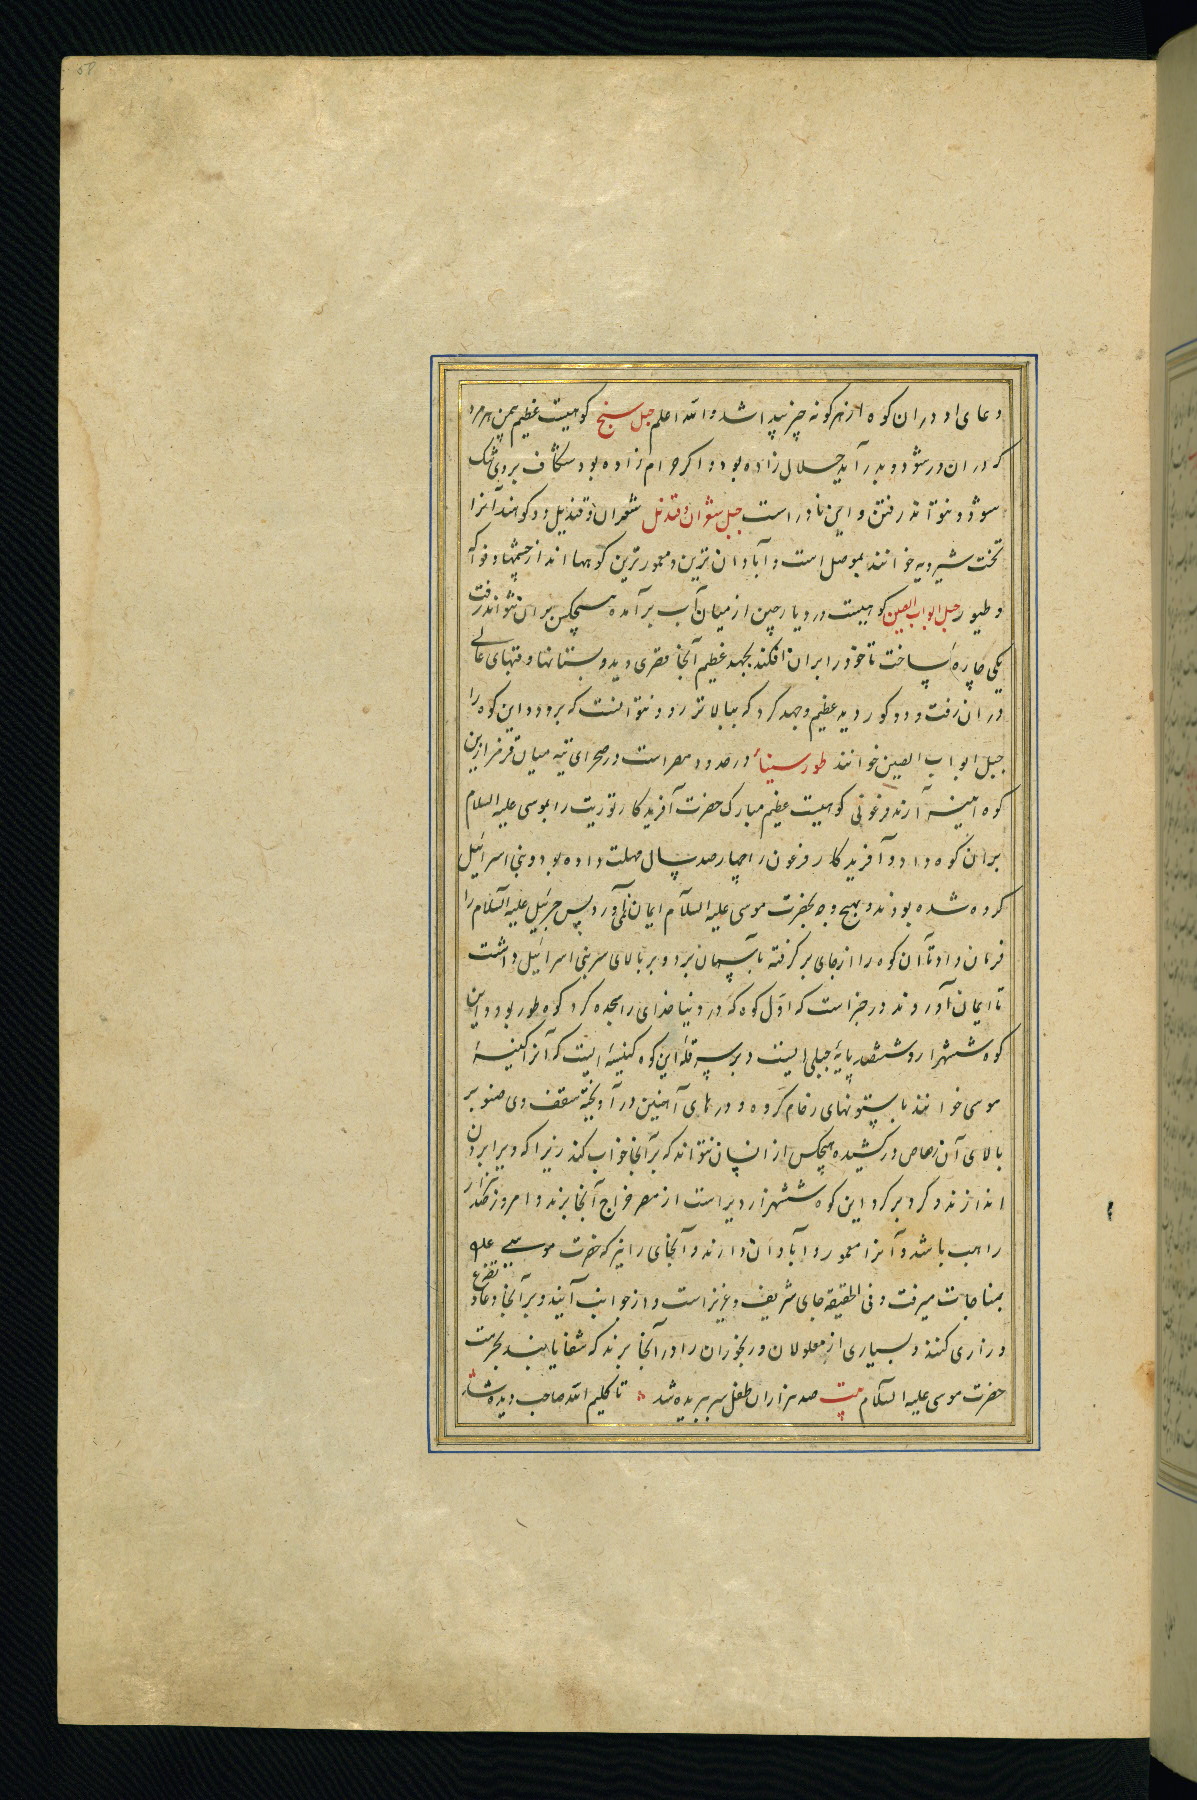 دعای او در ان کوه از هر کونه چیز پیدا شد والله اعلم جبل سنج کوهیست عظیم بیمن هر مرد
که در ان در شود و بدر آید حلال زاده بود و اکر حرام زاده بود شکاف بر وی تنک
شود و نتواند رفتن و این نادر است جبل شعران و قندیل شعران و قندیل دو کوهند آنرا
تخت شیرویه خوانند بموصل است و آبادان ترین و معمورترین کوهها اند از چشمها و فواکه
و طیور جبل ابواب الصین کوهیست در دیار چین از میان آب بر آمده هیچکس بر ان نتواند رفت
یکی چاره ساخت تا خود را بران افکند بجهد عظیم آنجا قصری دید و بستانها و قبهای عالی
در ان رفت و دود کور دید عظیم و جهد کرد که ببالاتر رود نتوانست که برود و این کوه را
جبل ابواب الصین خوانند طور سیناء در حدود مصر است در صحرای تیه میان قرمز ازین
کوه آرند فرغونی کوهیست عظیم مبارک حضرت آفریدکار توریت را بموسی علیه السلام
بران کوه داد و آفریدکار فرعون را چهارصد سال مهلت داده بود و بنی اسرائیل
کروه شده بودند و بهیچ وجه بحضرت موسی علیه السلام ایمان نمی آورد پس جبرئیل علیه السلام را
فرمان داد تا آن کوه را از جای بر کرفته بآسمان برد و بر بالای سر بنی اسرائیل داشت
تا ایمان آوردند در خبر است که اول کوه که در دنیا خدای را سجده کرد کوه طور بود و این
کوه ششهزار و ششصد پایهٔ جبلی است و بر سه قلهٔ این کوه کنیسهٔ ایست که آنرا کنیسهٔ
موسی خوانند با ستونهای رخام کرده و درهای آهنین در آویخته سقف وی صنوبر
بالای آن رصاص در کشیده هیچکس از انسان نتواند که بر آنجا خواب کند زیرا که ویرا بیرون
اندازند و کرد بر کرد این کوه ششهزار دیر است از مصر خراج آنجا برند و امروز
راهب باشد و آنرا معمور و آبادان دارند و آنجای را نیز که حضرت موسی علیه
بمناجات میرفت و فی الحقیقه جای شریف و عزیز است و از جوانب آیند و بر آنجا دعا و تضرع
و زاری کنند و بسیاری از معلولان و رنجوران را در آنجا برند که شفا یابند بحرمت
حضرت موسی علیه السلام بیت صد هزاران طفل سر ببریده شد تا کلیم الله صاحب دیده شد